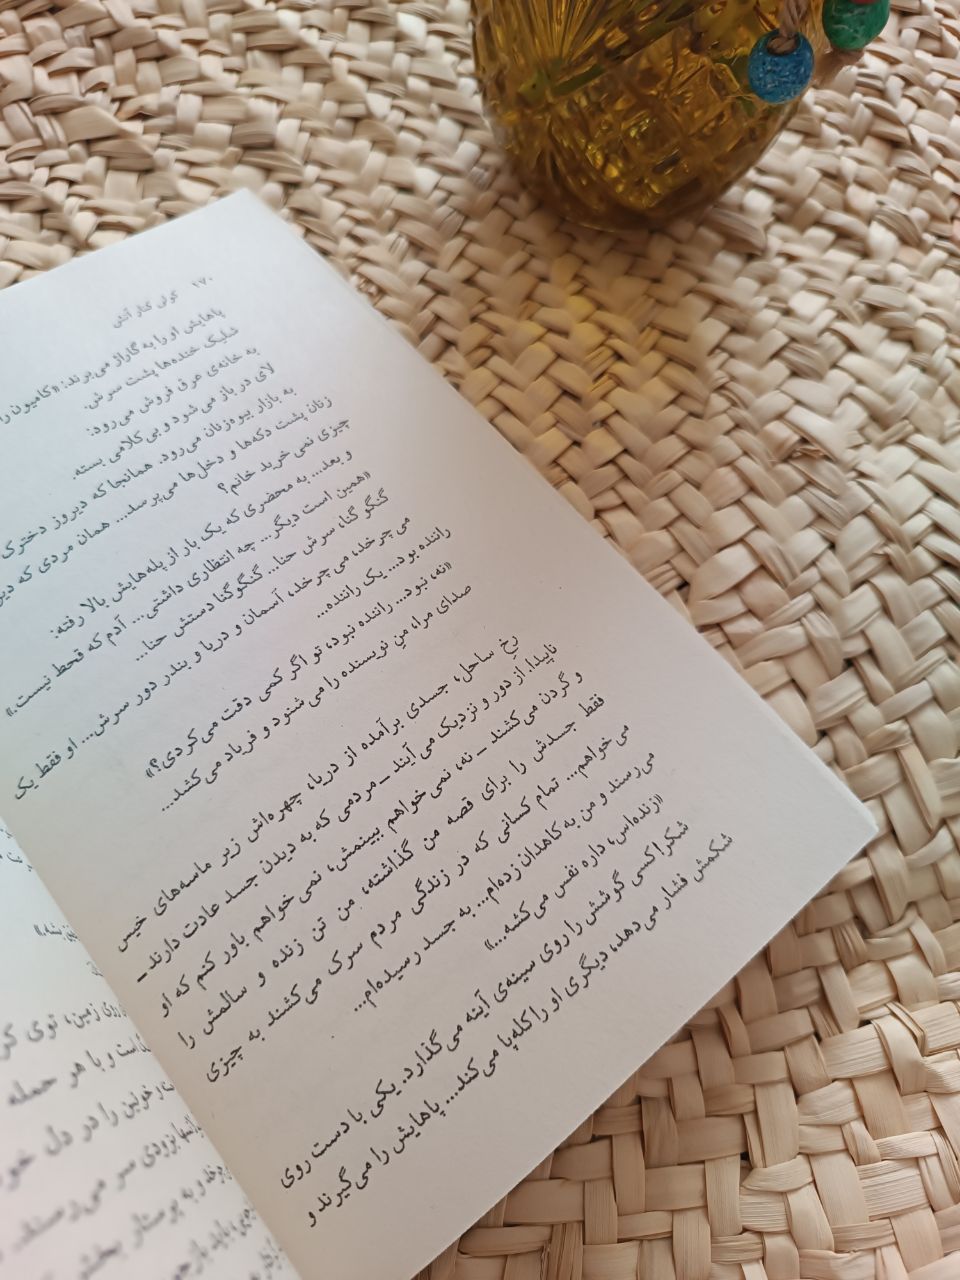 ۱۷۰ کولی کنار آتش
پاهایش او را به گاراژ می‌برند: «کامیون را
شلیک خنده‌ها پشت سرش.
به خانه‌ی عرق فروش می‌رود:
لای در باز می‌شود و بی کلامی بسته.
به بازار بیوه‌زنان می‌رود. همانجا که دیروز دخترک
زنان پشت دکه‌ها و دخل‌ها می‌پرسد... همان مردی که دیر
چیزی نمی خرید خانم؟
و بعد... به محضری که یک بار از پله‌هایش بالا رفته:
«همین است دیگر... چه انتظاری داشتی... آدم که قحط نیست.»
گنگو گنا، سرش حنا... گنگو گنا دستش حنا...
می چرخد، می چرخد، آسمان و دریا و بندر دور سرش... او فقط یک
راننده بود... یک راننده...
«نه، نبود... راننده نبود، تو اگر کمی دقت می‌کردی؟»
صدای مرا، منِ نویسنده را می شنود و فریاد می کشد...
رخِ ساحل، جسدی برآمده از دریا، چهره‌اش زیر ماسه‌های خیس
ناپیدا. از دور و نزدیک می‌آیند ـ مردمی که به دیدن جسد عادت دارند ـ
و گردن می‌کشند ـ نه، نمی خواهم ببینمش، نمی خواهم باور کنم که او
فقط جسدش را برای قصه من گذاشته، من تن زنده و سالمش را
می خواهم... تمام کسانی که در زندگی مردم سرک می کشند به چیزی
می‌رسند و من به کاهدان زده‌ام... به جسد رسیده‌ام...
«زنده‌اس، داره نفس می‌کشه...»
شکر! کسی گوشش را روی سینه‌ی آینه می گذارد. یکی با دست روی
شکمش فشار می دهد، دیگری او را کله‌پا می کند... پاهایش را می گیرند و
روی زمین، توی
است و با هر حمله
را در دل
سر می‌رسند.